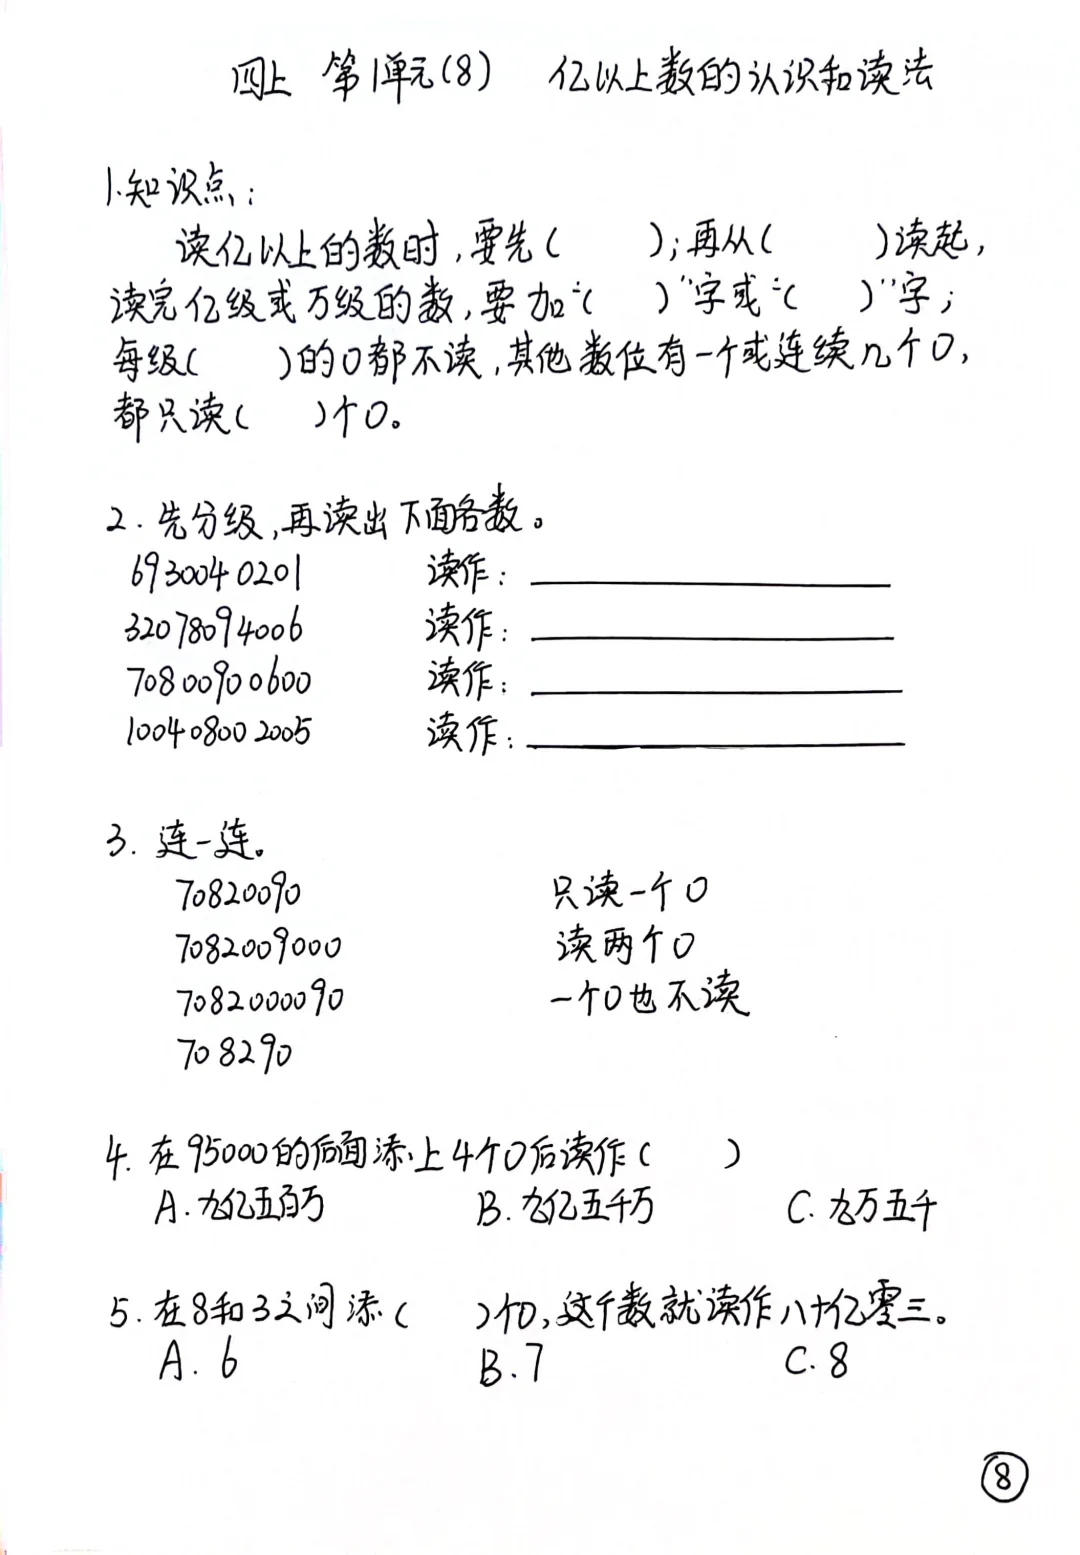 四上 第1单元(8) 亿以上数的认识和读法
1.知识点:
读亿以上的数时,要先( );再从( )读起,
读完亿级或万级的数,要加“( )”字或“( )”字;
每级( )的0都不读,其他数位有一个或连续几个0,
都只读( )个0。
2.先分级,再读出下面各数。
6930040201 读作:
32078094006 读作:
70800900600 读作:
100408002005 读作:
3. 连一连。
70820090 只读一个0
7082009000 读两个0
7082000090 一个0也不读
708290
4. 在95000的后面添上4个0后读作( )
A.九亿五百万 B.九亿五千万 C.九万五千
5.在8和3之间添( )个0,这个数就读作八十亿零三。
A. 6 B.7 C.8
8